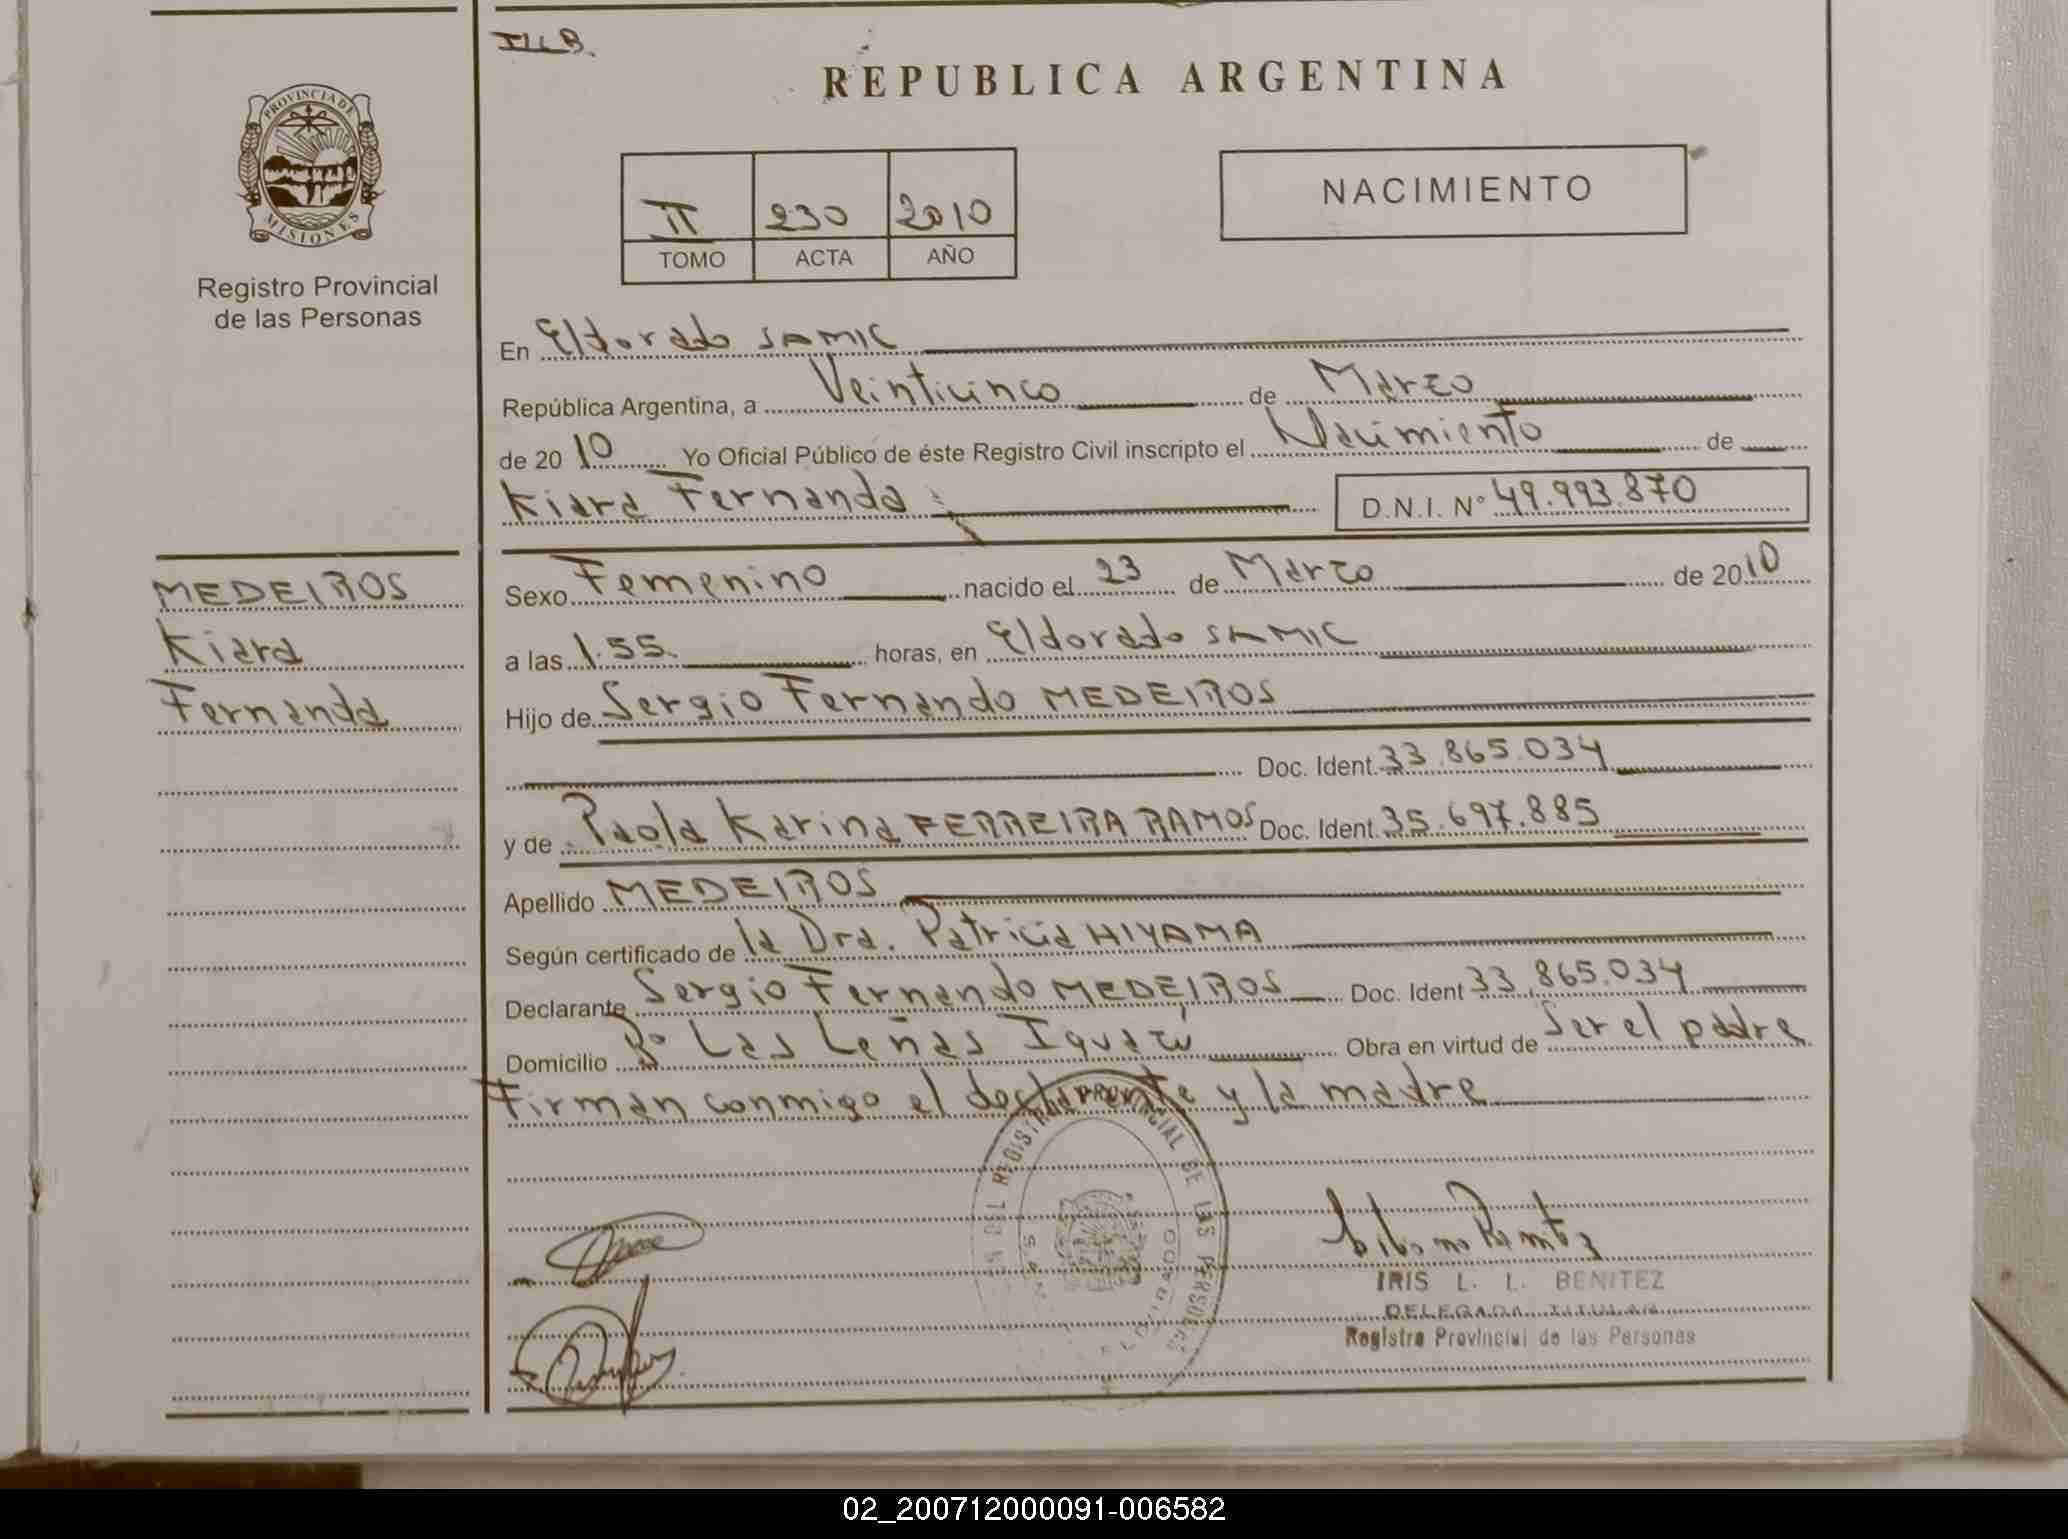 ILB.
REPUBLICA ARGENTINA
PROVINCIA DE
MISIONES
Registro Provincial
de las Personas
II 230 2010
TOMO ACTA AÑO
NACIMIENTO
En Eldorado SAMIC
República Argentina, a Veinticinco de Marzo
de 2010 Yo Oficial Público de éste Registro Civil inscripto el Nacimiento de
Kiara Fernanda D.N.I. Nº 49.993.870
MEDEIROS
Kiara
Fernanda
Sexo Femenino nacido el 23 de Marzo de 2010
a las 1.55. horas, en Eldorado SAMIC
Hijo de Sergio Fernando MEDEIROS
Doc. Ident. 33.865.034
y de Paola Karina FERREIRA RAMOS Doc. Ident. 35.697.885
Apellido MEDEIROS
Según certificado de la Dra. Patricia HIYAMA
Declarante Sergio Fernando MEDEIROS Doc. Ident 33.865.034
Domicilio Bº Las Leñas Iguazú Obra en virtud de Ser el padre
Firman conmigo el declarante y la madre
DEL REGISTRO PROVINCIAL DE LAS PERSONAS
ELDORADO
IRIS L. I. BENITEZ
DELEGADA TITULAR
Registro Provincial de las Personas
02_200712000091-006582